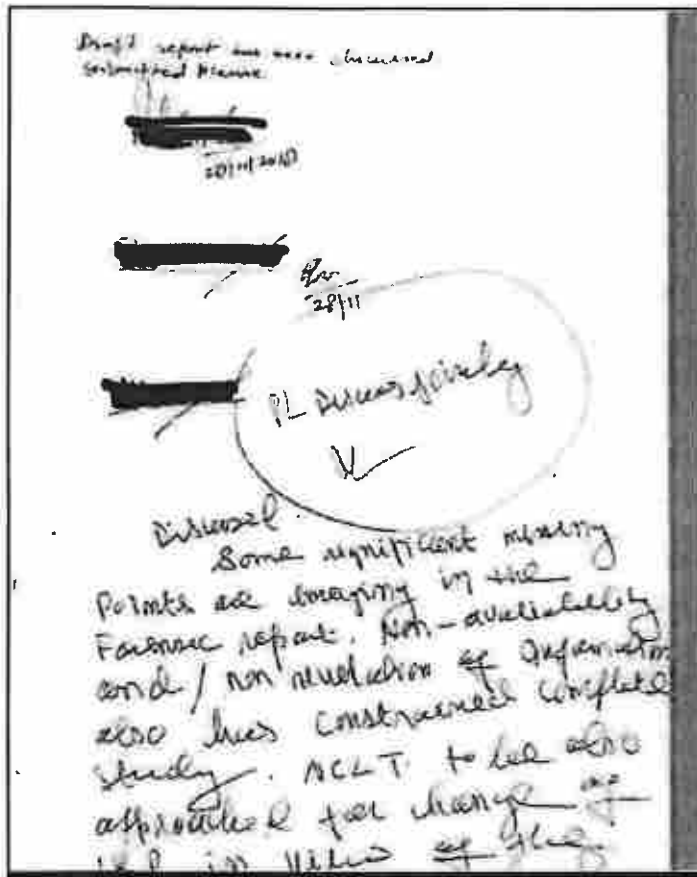 Draft report
submitted please
28/11
PL Discuss jointly
Discussed.
Some significant missing
Points are emerging in the
Forensic report. Non-availability
and/ non revelation of information
also has constrained complete
study. NCLT to be also
approached for change of
in view of the